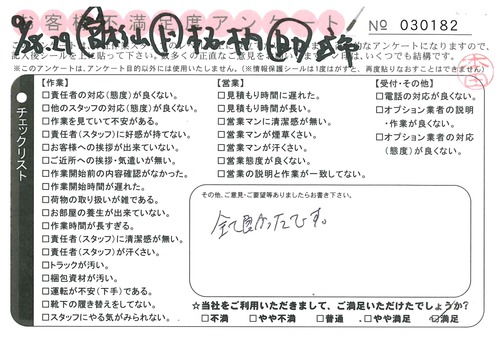 お客様不満足度アンケート
№ 030182
記入後シールを上に貼って下さい。数多くの直正なご意見を
いくつでも結構です。
※このアンケートは、アンケート目的以外には使用いたしません。(※情報保護シールは1度はがすと、再度貼りなおすことはできません。)
チェックリスト
【作業】
□責任者の対応(態度)が良くない。
□他のスタッフの対応(態度)が良くない。
□作業を見ていて不安がある。
□責任者(スタッフ)に好感が持てない。
□お客様への挨拶が出来ていない。
□ご近所への挨拶・気遣いが無い。
□作業開始前の内容確認がなかった。
□作業開始時間が遅れた。
□荷物の取り扱いが雑である。
□お部屋の養生が出来ていない。
□作業時間が長すぎる。
□責任者(スタッフ)に清潔感が無い。
□責任者(スタッフ)が汗くさい。
□トラックが汚い。
□梱包資材が汚い。
□運転が不安(下手)である。
□靴下の履き替えをしてない。
□スタッフにやる気がみられない。
【営業】
□見積もり時間に遅れた。
□見積もり時間が長い。
□営業マンに清潔感が無い。
□営業マンが煙草くさい。
□営業マンが汗くさい。
□営業態度が良くない。
□営業の説明と作業が一致してない。
【受付・その他】
□電話の対応が良くない。
□オプション業者の説明
・作業が良くない。
□オプション業者の対応
(態度)が良くない。
その他、ご意見・ご要望等ありましたらお書き下さい。
全て良かったです。
☆当社をご利用いただきまして、ご満足いただけたでしょうか?
□不満 □やや不満 □普通 □やや満足 □満足